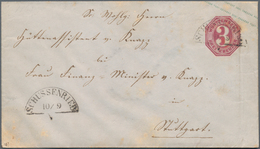 Sr. Wohlg. Herrn
Hüttenassistent v. Knapp
bei
Frau Finanz-Minister v. Knapp.
in
Stuttgart.
3
SCHUSSENRIED
10/9